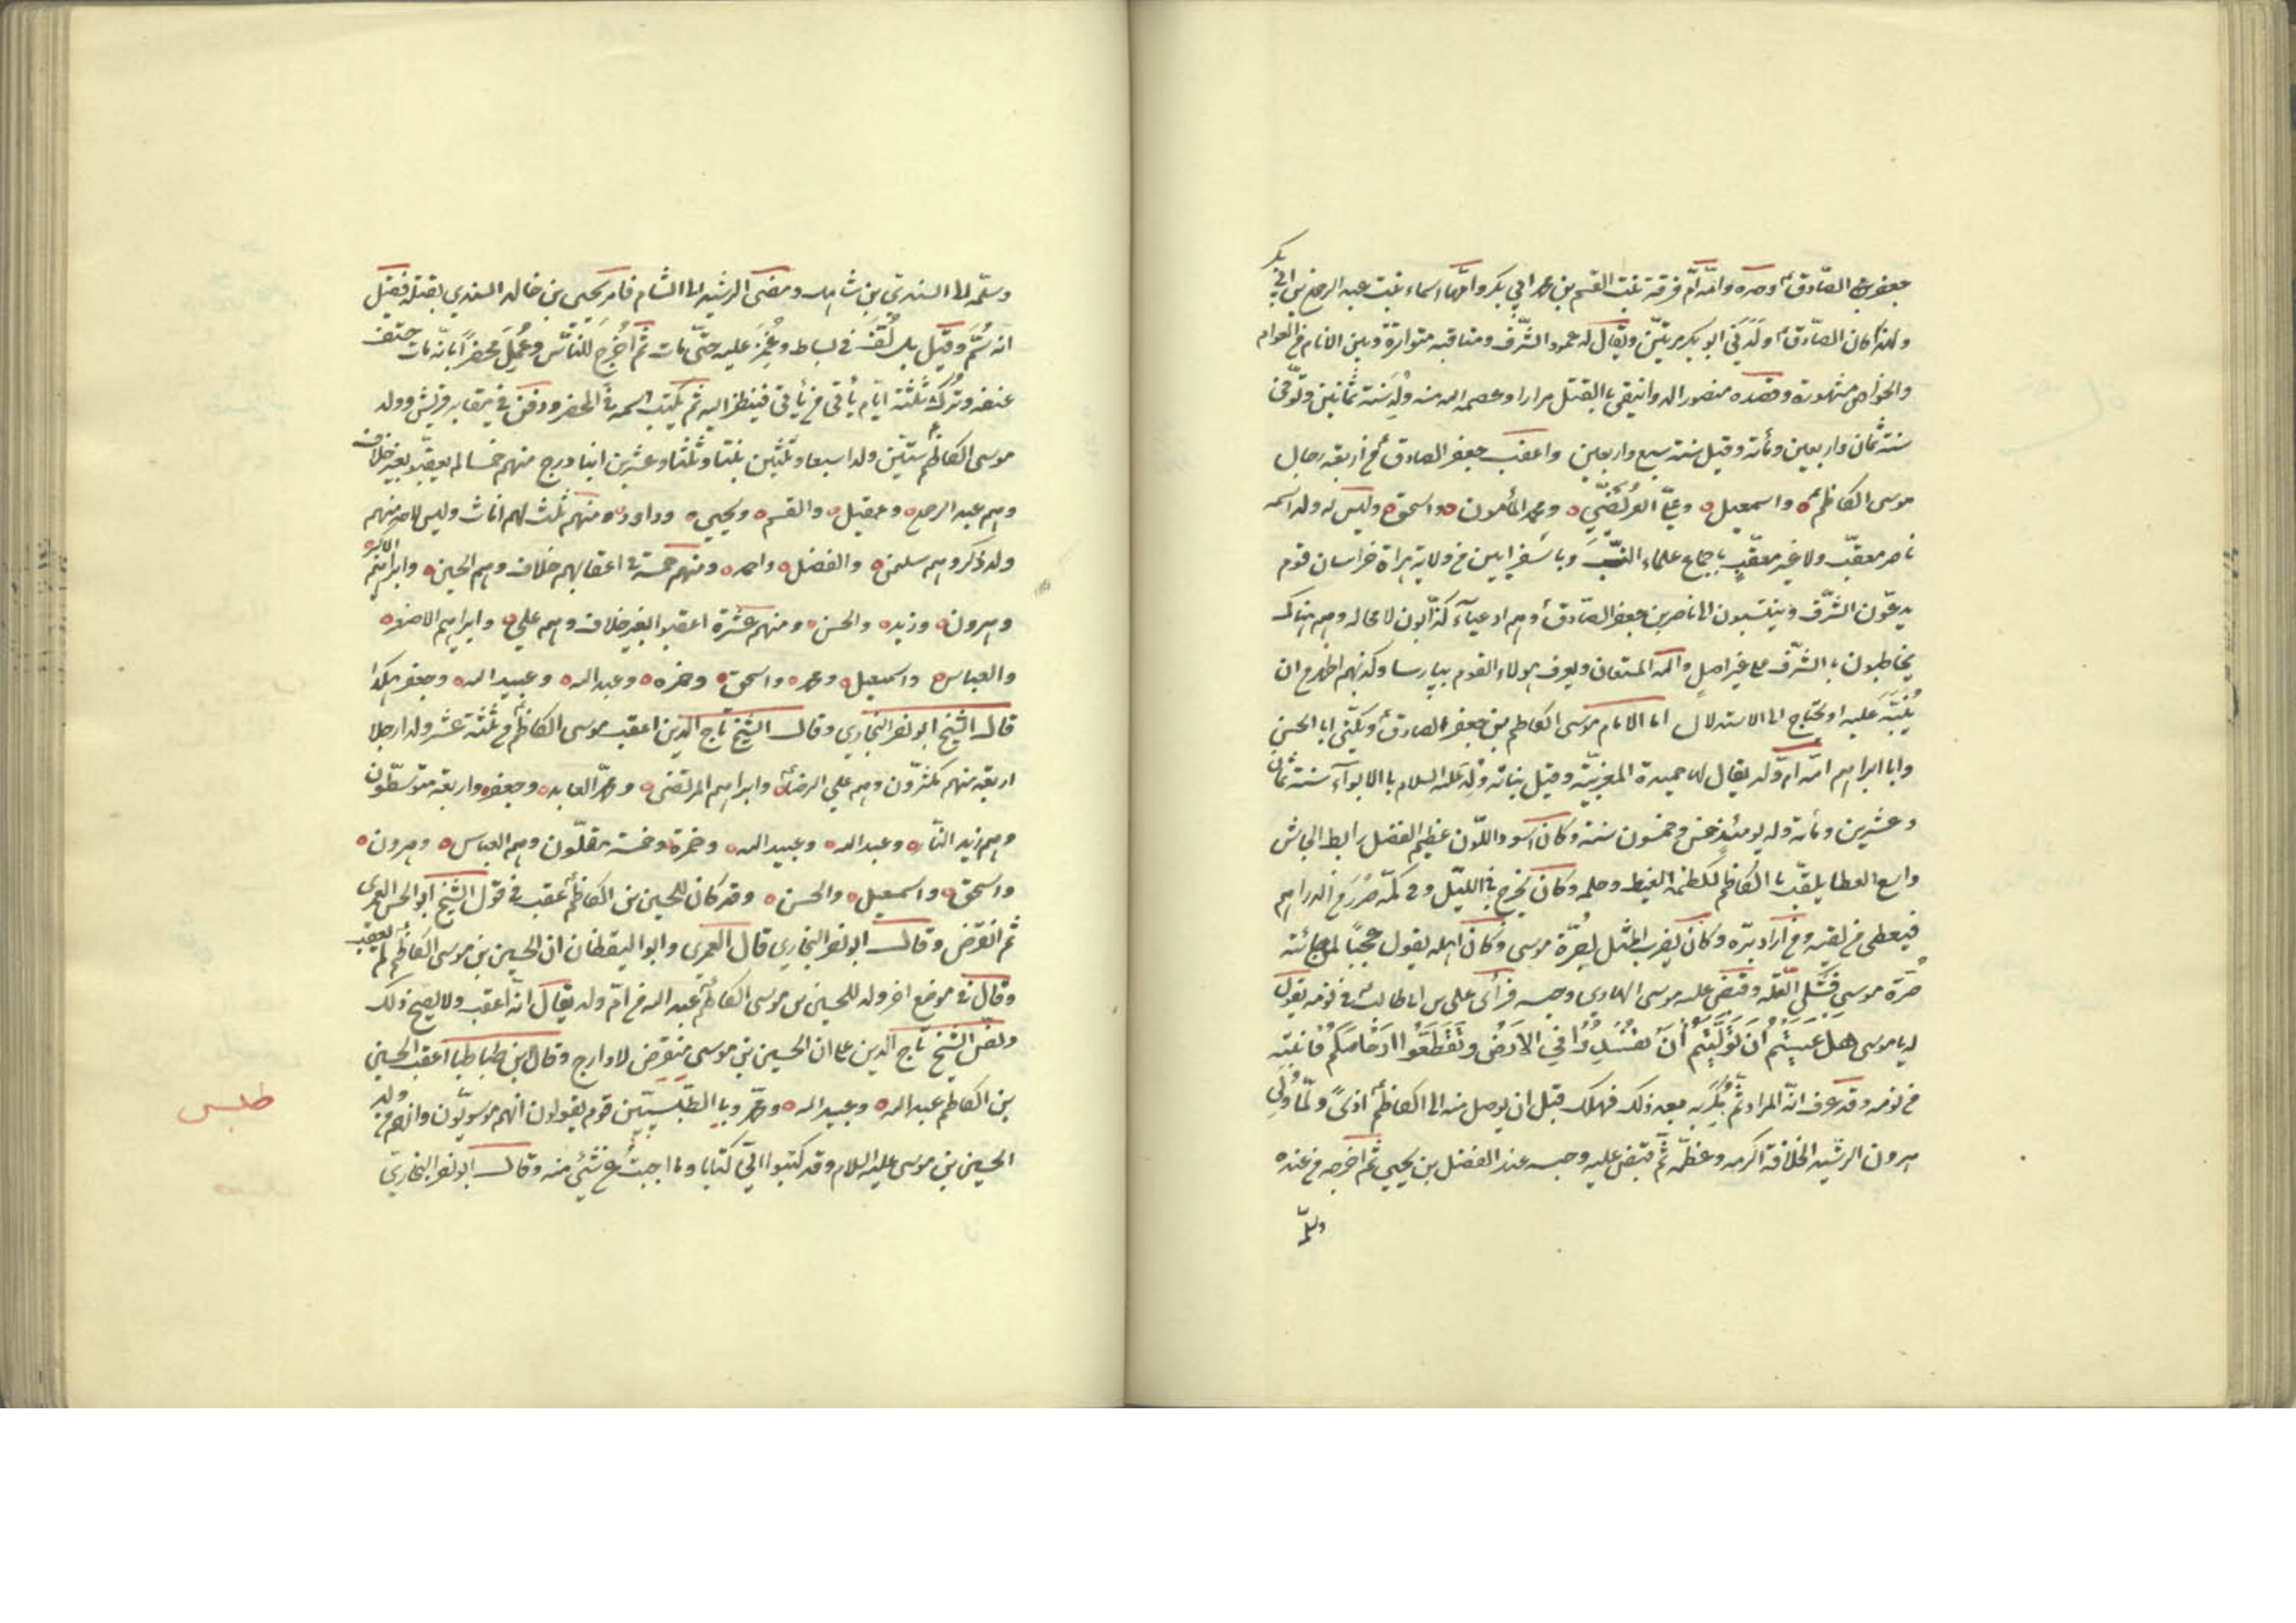 جعفر الصّادق ع وحده وامّه امّ فروة بنت القسم بن محمد ابي بكر وامّها اسماء بنت عبد الرحمن بن ابي
بكر
ولهذا كان الصّادق ع ولدني ابو بكر مرتيّن ويقال له عمود الشّرف ومناقبه متواترة وبين الانام من العوام
والخواص مشهورة وقصده منصور الدوانيقي بالقتل مرارا وعصمه الله منه ولد سنة ثمانين وتوّفى
سنة ثمان واربعين ومأته وقيل سنة سبع واربعين واعقب جعفر الصادق ع من اربعة رجال
موسى الكاظم ع واسمعيل وعليّ العُرَيضّي ومحمد المأمون واسحق وليس له ولد اسمه
ناصر معقّب ولا غير معقّب باجماع علماء النّسب وباسفرايين من ولاية هراة خراسان قوم
يدعّون الشّرف وينتسبون الى ناصر بن جعفر الصّادق ع وهم ادعياء كذّابون لا محاله وهم هناك
يخاطبون بالشّرف على غير اصل والله المستعان ويعرف هولاء القوم ببارسا وكذبهم اظهر من ان
يُنَبّه عليه او يحتاج الى الاستدلال اما الامام موسى الكاظم بن جعفر الصادق ع ويكنّى ابا الحسن
وابا ابراهيم امّه امّ ولد يقال لها حميدة المغربيّة وقيل نباته ولد عليه السلام بالابوآء سنة ثمان
وعشرين ومأته وله يومئذ خمس وخمسون سنة وكان اسود اللّون عظيم الفضل رابط الجاش
واسع العطا يلقّب بالكاظم لكظمه الغيظ وحلمه وكان يخرج في اللّيل وفي كمّه صُرَر من الدراهم
فيعطى من لقيه ومن اراد برّه وكان يضرب المثل بصُرّة موسى وكان اهله يقول عجبًا لمن جائته
صُرّة موسى فشكى القلّه وقبض عليه موسى الهادي وحبسه فرأى علي بن ابا طالب ع في نومه يقول
له يا موسى هل عسيتم ان تولّيتم ان تفسدوا في الارض وتقطّعوا ارحامكم فانتبه
من نومه وقد عرف انّه المراد ثم نكّر به بعد ذلك فهلك قبل ان يوصل منه الى الكاظم ع اذىً ولمّا ولّى
هرون الرشيد الخلافة اكرمه وعظّمه ثمّ قبض عليه وحبسه عند الفضل بن يحيى ثم اخرجه من عنده
وسلّمه
وسلّمه الى السندي بن شاهك ومضى الرشيد الى الشام فامر يحيى بن خالد السندي بقتله فقيل
انه سُمّ وقيل بل لُفّ في بساط وغُمِزَ عليه حتّى مات ثم اُخرِجَ للنّاس وعُمِلَ محضرًا بانّه مات حتف
انفه وتُرك ثلثة ايّام يأتي من يأتي فينظر اليه ثم يكتب اسمه في المحضر ودفن في مقابر قريش وولد
موسى الكاظم ع ستّين ولدا سبعا وثلثين بنتا وثلثا وعشرين ابنا درج منهم خمسا لم يعقبوا بغير خلاف
وهم عبد الرحمن وعقيل والقسم ويحيى وداود ومنهم ثلث لهم اناث وليس لاحد منهم
ولد ذكر وهم سليمن والفضل واحمد ومنهم خمسة في اعقابهم خلاف وهم الحسين وابراهيم الاكبر
وهرون وزيد والحسن ومنهم عشرة اعقبوا بغير خلاف وهم علي وابراهيم الاصغر
والعباس واسمعيل ومحمد واسحق وحمزه وعبد الله وعبيد الله وجعفر هكذا
قال الشيخ ابو نصر البخاري وقال الشيخ تاج الدين اعقب موسى الكاظم ع من ثلثة عشر ولدا رجلا
اربعة منهم مكثرّون وهم علي الرضا ع وابراهيم المرتضى ومحمّد العابد وجعفر واربعة متوسطّون
وهم زيد النّار وعبد الله وعبيد الله وحمزة وخمسة مقلّون وهم العباس وهرون
واسحق واسمعيل والحسن وقد كان للحسين بن الكاظم ع عقب في قول الشيخ ابو الحسن العمري
ثم انقرض وقال ابو نصر البخاري قال العمرى وابو اليقظان ان الحسين بن موسى الكاظم ع لم يعقب
وقال في موضع اخر ولد للحسين بن موسى الكاظم ع عبد الله من امّ ولد يقال انّه اعقب ولا يصحّ ذلك
ونصّ الشيخ تاج الدين على ان الحسين بن موسى منقرض لا دارج وقال ابن طباطبا اعقب الحسين
بن الكاظم عبد الله وعبيد الله ومحمّد وبالطّبسيّين قوم يقولون انهم موسويّون وانهم من ولد
الحسين بن موسى عليه السلام وقد كتبوا اليّ كتابا وما اجبتُ عن شئ منه وقال ابو نصر البخاريّ
طبس